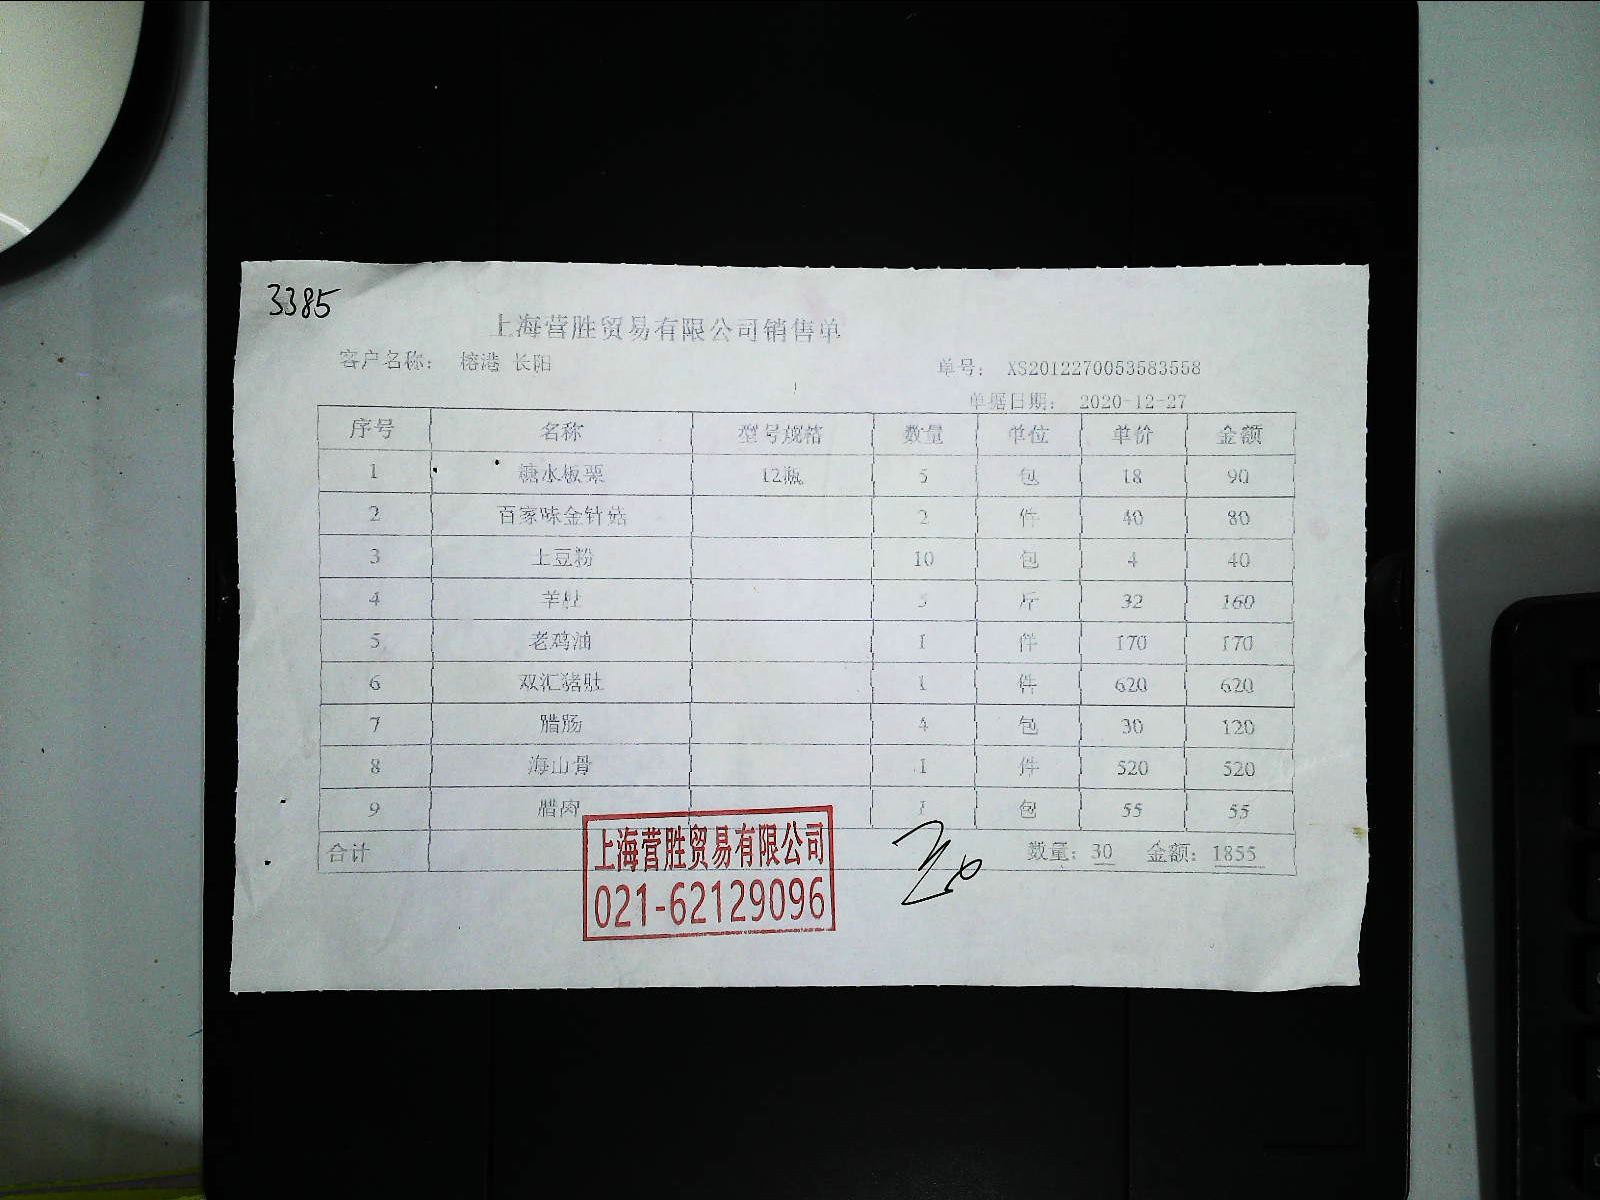 3385
上海营胜贸易有限公司销售单
客户名称： 榕港 长阳 单号： XS2012270053583558
单据日期： 2020-12-27
序号 名称 型号规格 数量 单位 单价 金额
1 糖水板栗 12瓶 5 包 18 90
2 百家味金针菇 2 件 40 80
3 土豆粉 10 包 4 40
4 羊肚 5 斤 32 160
5 老鸡油 1 件 170 170
6 双汇猪肚 1 件 620 620
7 腊肠 4 包 30 120
8 海山骨 1 件 520 520
9 腊肉 1 包 55 55
合计 数量： 30 金额： 1855
上海营胜贸易有限公司
021-62129096